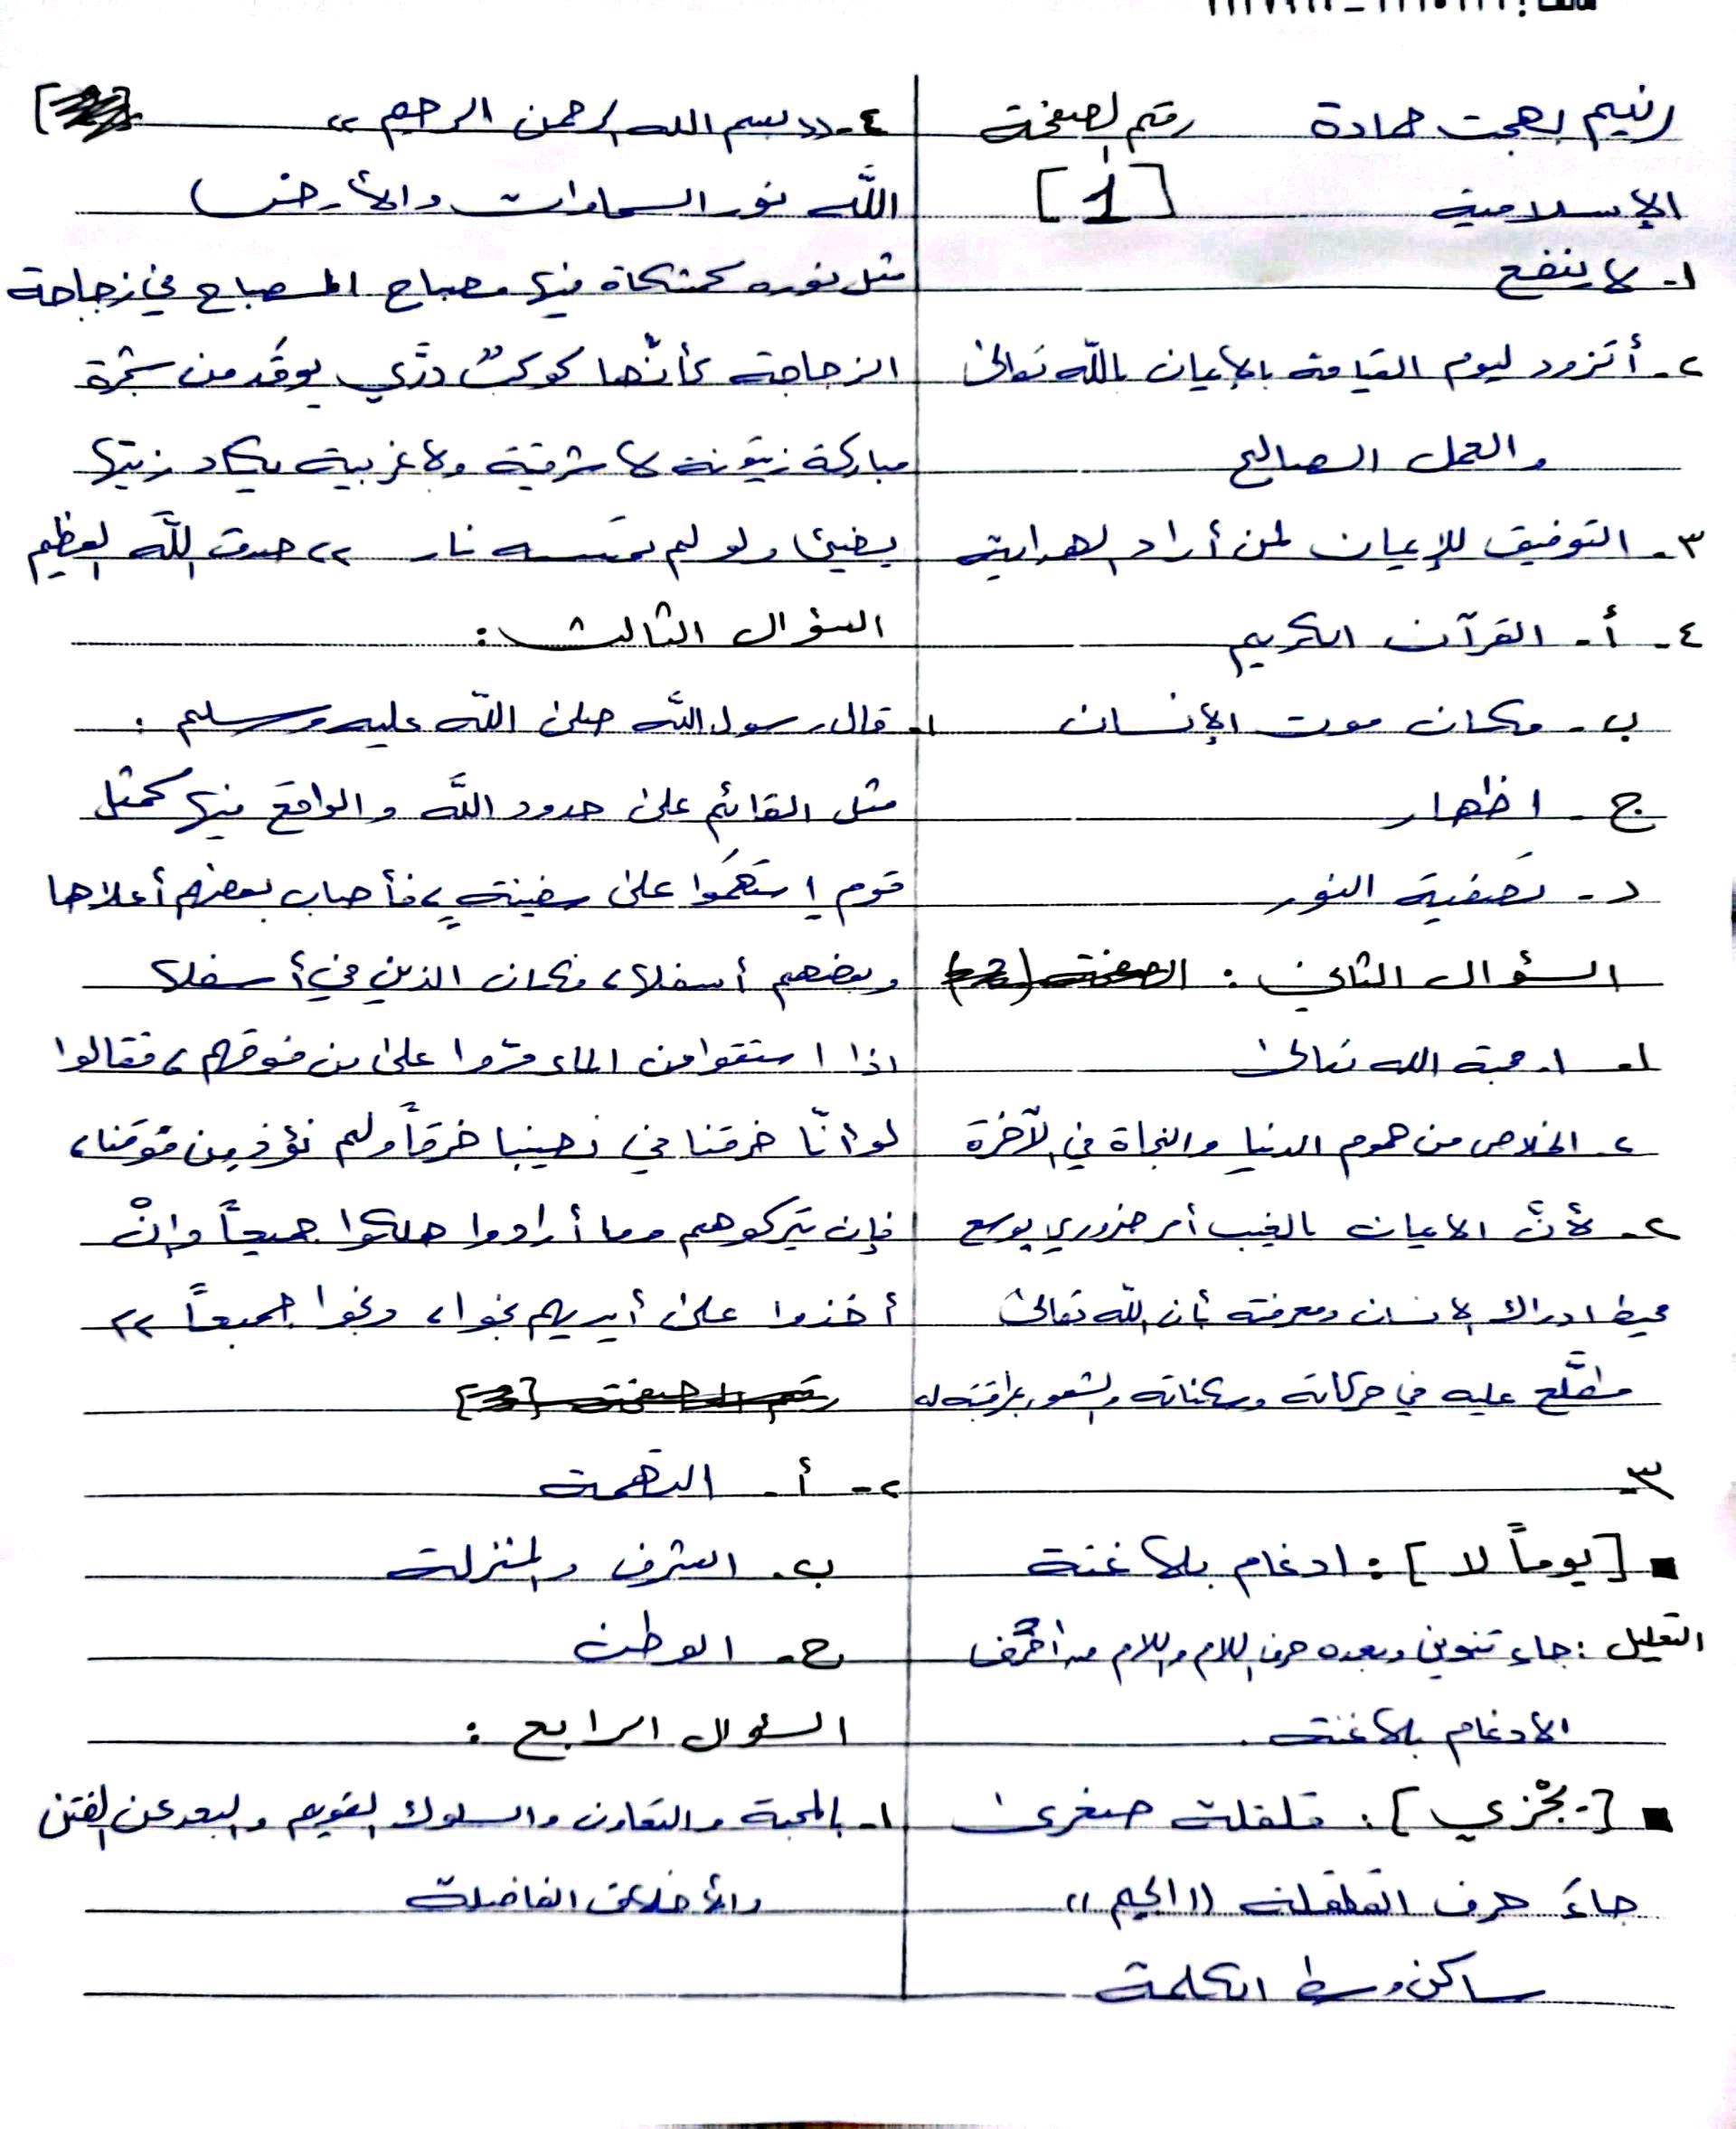 رنيم بهجت حمادة
رقم الصفحة
الإسلامية
[1]
١- لا ينفع
٢- أتزود ليوم القيامة بالإيمان بالله تعالى
والعمل الصالح
٣- التوفيق للإيمان لمن أراد الهداية
٤- أ- القرآن الكريم
ب- مكان موت الإنسان
ج- اظهار
د- تصفية النور
السؤال الثاني :
١- ١. محبة الله تعالى
٢. الخلاص من هموم الدنيا والنجاة في الآخرة
٢- لأنّ الايمان بالغيب أمر ضروري يوسع
محيط ادراك الانسان ومعرفته بأن الله تعالى
مطّلع عليه في حركاته وسكناته والشعور بمراقبته له
٣-
■ [يوماً لا] : ادغام بلا غنة
التعليل : جاء تنوين وبعده حرف اللام واللام من أحرف
الادغام بلا غنة .
■ [تجْزي] : قلقلة صغرى
جاءَ حرف القلقلة ((الجيم))
ساكن وسط الكلمة
٤- ((بسم الله الرحمن الرحيم))
اللَّه نور السماوات والأرض
مثل نوره كمشكاة فيها مصباح المصباح في زجاجة
الزجاجة كأنّها كوكبٌ درّي يوقَد من شجرة
مباركة زيتونة لا شرقية ولا غربية يكاد زيتها
يضيئ ولو لم تمسسه نار )) صدق اللَّه العظيم
السؤال الثالث :
١- قال رسول اللَّه صلى اللّه عليه وسلم :
مثل القائم على حدود اللَّه والواقع فيها كمثل
قوم إستهَموا على سفينةٍ، فأصاب بعضهم أعلاها
وبعضهم أسفلها، فكان الذين في أسفلها
اذا استقوا من الماء مرّوا على من فوقهم، فقالوا
لو أنّا خرقنا في نصيبنا خرقاً ولم نؤذ من فوقنا،
فإن تتركوهم وما أرادوا هلكوا جميعاً وإنْ
أخذوا على أيديهم نجوا، ونجوا جميعاً ))
٢- أ- التهمة
ب- الشرف والمنزلة
ج- الوطن
السؤال الرابع :
١- بالمحبة والتعاون والسلوك القويم والبعد عن الفتن
والأخلاق الفاضلة